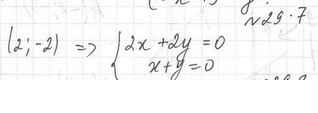 №29.7
(2;-2) => { 2x+2y=0
x+y=0